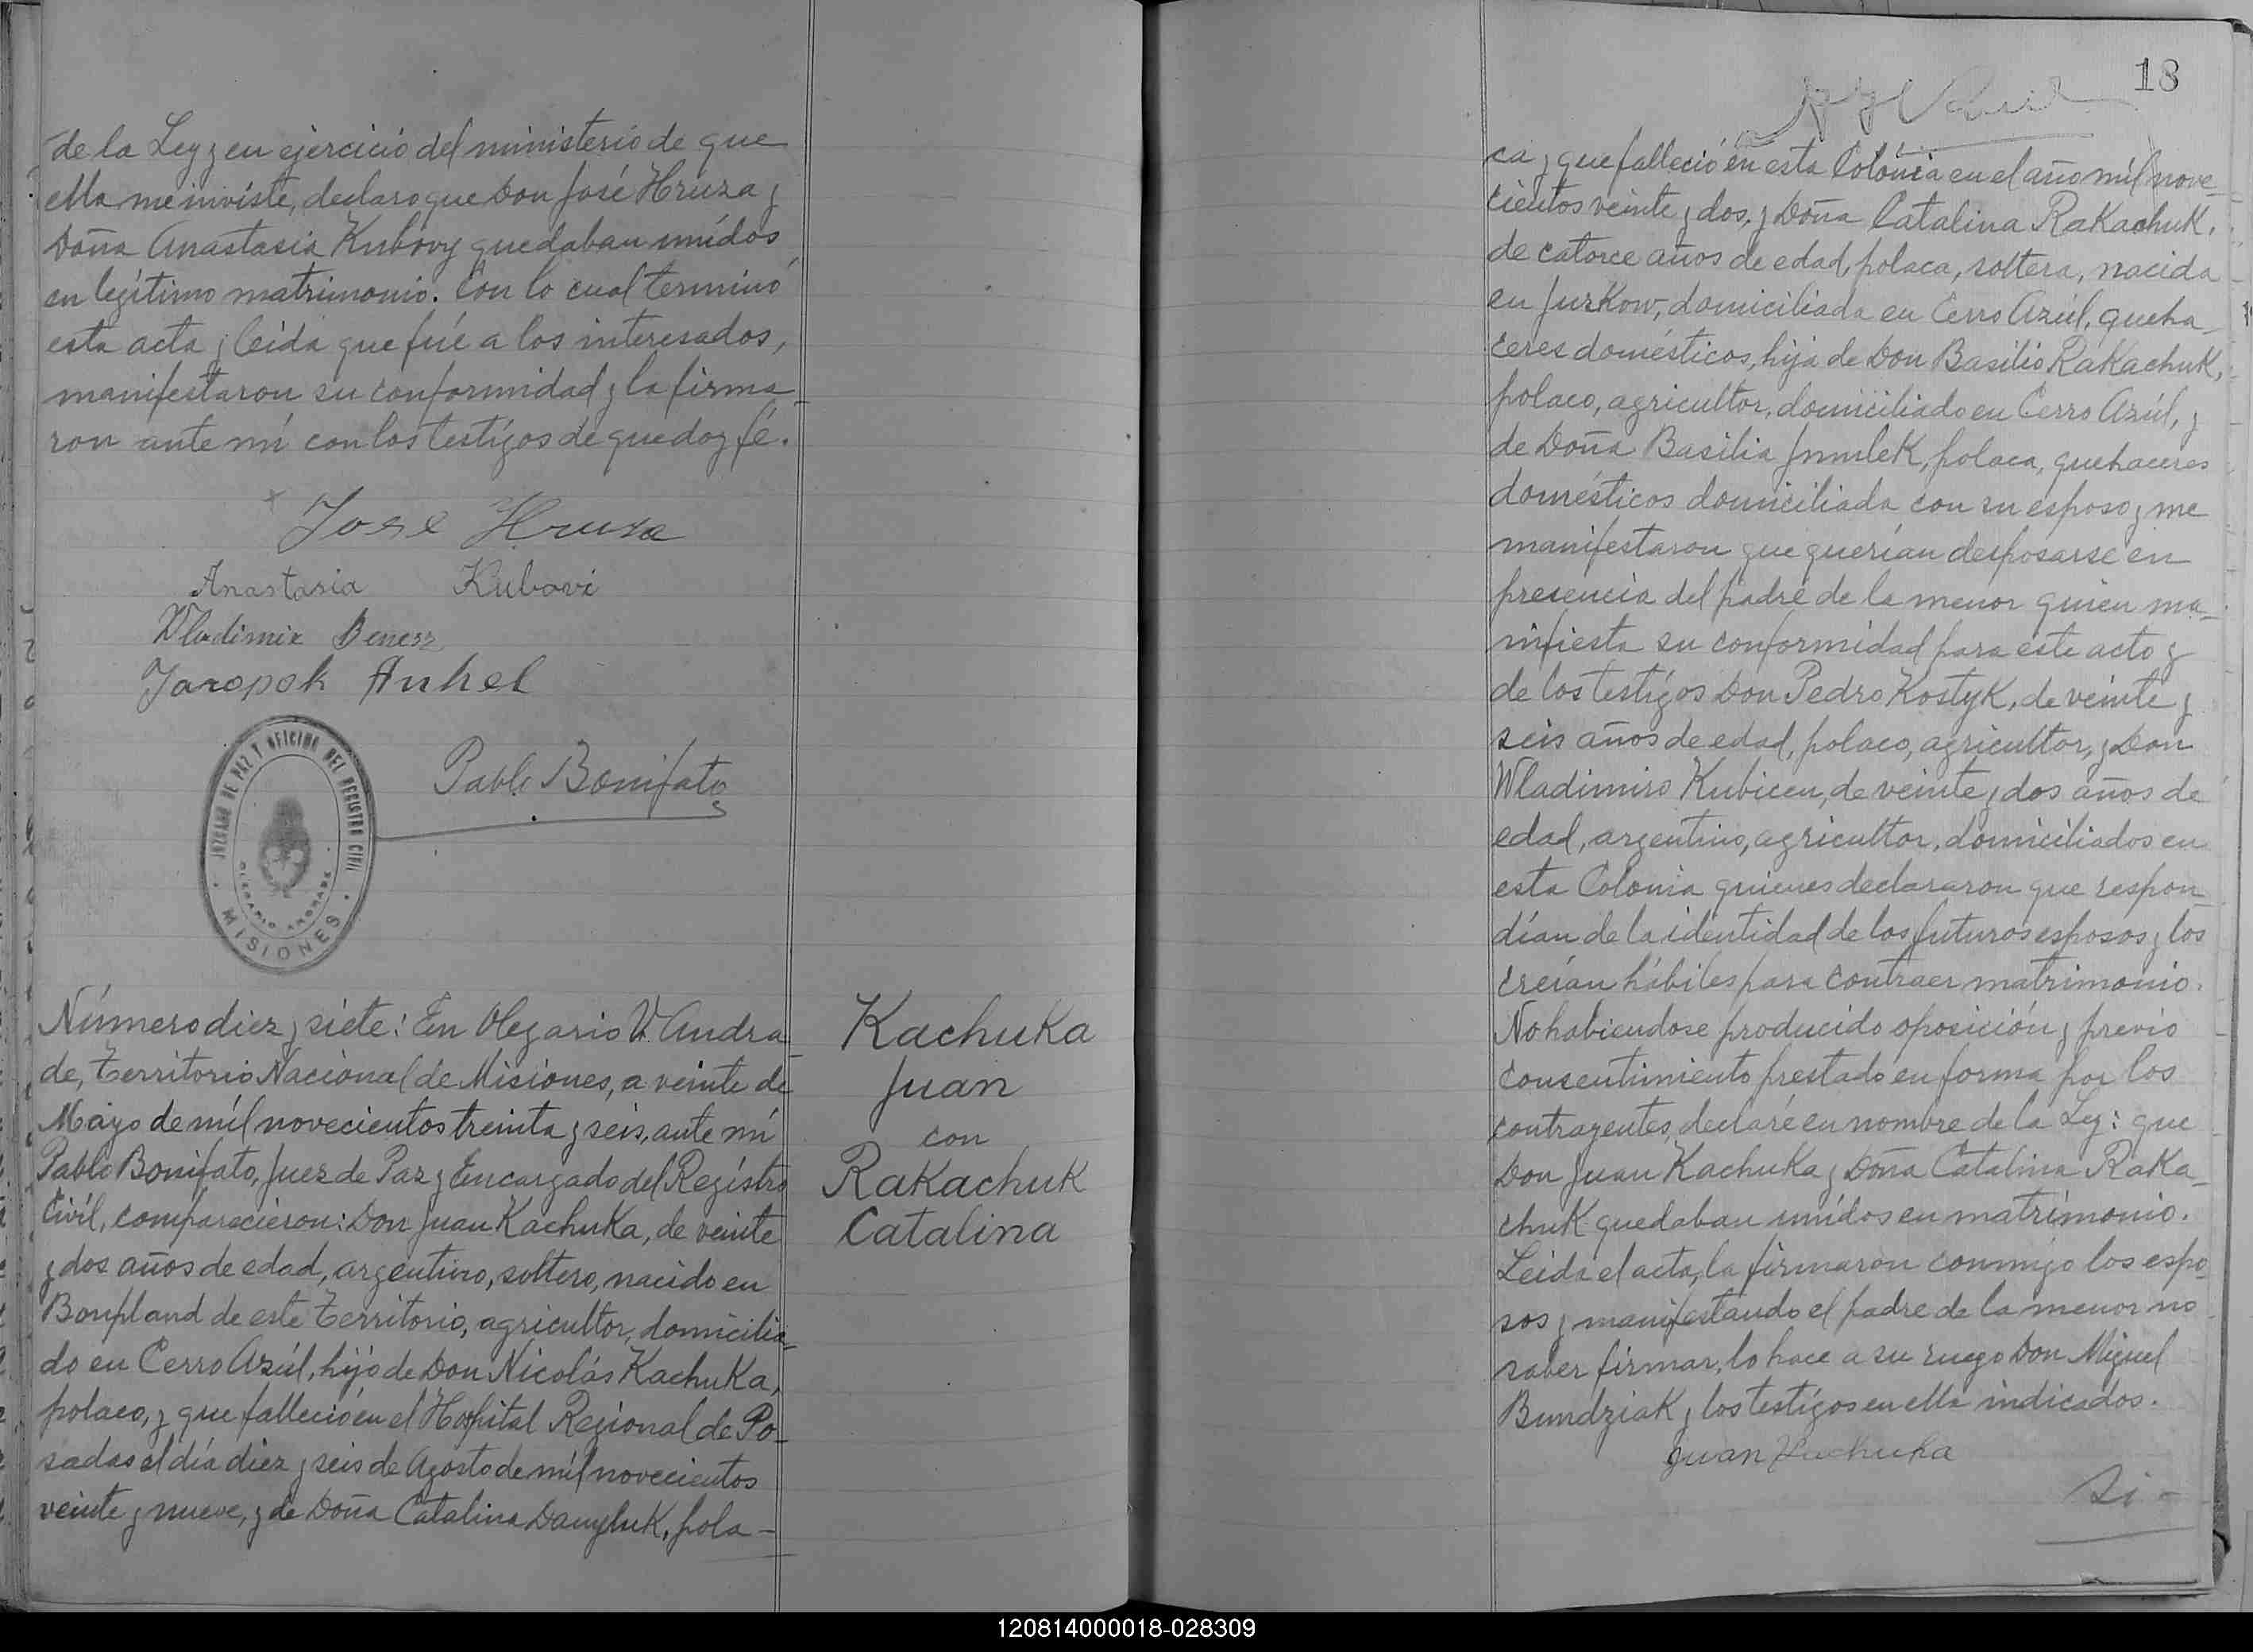 de la Ley y en ejercicio del ministerio de que
ella me inviste, declaro que Don José Hruza y
Doña Anastasia Kubovy quedaban unídos
en legítimo matrimonio. Con lo cual terminó
esta acta y leida que fué a los interesados,
manifestaron su conformidad y la firma-
ron ante mí con los testígos de que doy fé.
Jose Hruza
Anastasia Kubovi
Wladimir Benesz
Jaropok
JUZGADO DE PAZ Y OFICINA DEL REGISTRO CIVIL
OLEGARIO ANDRADE
MISIONES
Pablo Bonifato
Número diez y siete: En Olegario V. Andra-
de, Territorio Nacional de Misiones, a veinte de
Mayo de míl novecientos treinta y seis, ante mí
Pablo Bonifato, Juez de Paz y Encargado del Regístro
Civíl, comparecieron: Don Juan Kachuka, de veinte
y dos años de edad, argentino, soltero, nacido en
Bonpland de este Territorio, agricultor, domicilia-
do en Cerro Azúl, hijo de Don Nicolás Kachuka,
polaco, y que falleció en el Hospital Regional de Po-
sadas el día diez y seis de Agosto de míl novecientos
veinte y nueve, y de Doña Catalina Danyluk, pola-
Kachuka
Juan
con
Rakachuk
Catalina
18
ca, y que falleció en esta Colonia en el año míl nove-
cientos veinte y dos, y Doña Catalina Rakachuk,
de catorce años de edad, polaca, soltera, nacida
en Jurkow, domiciliada en Cerro Azúl, queha-
ceres domésticos, hija de Don Basilio Rakachuk,
polaco, agricultor, domiciliado en Cerro Azúl, y
de Doña Basilia polaca, quehaceres
domésticos domiciliada con su esposo y me
manifestaron que querían desposarse en
presencia del padre de la menor quien ma-
nifiesta su conformidad para este acto y
de los testígos Don Pedro Kostyk, de veinte y
seis años de edad, polaco, agricultor, y Don
Wladimiro Kubiceu, de veinte y dos años de
edad, argentino, agricultor, domiciliados en
esta Colonia quienes declararon que respon-
dían de la identidad de los futuros esposos y los
creían hábiles para contraer matrimonio.
No habiendose producido oposición y previo
consentimiento prestado en forma por los
contrayentes, declaré en nombre de la Ley: que
Don Juan Kachuka y Doña Catalina Raka-
chuk quedaban unídos en matrímonio.
Leida el acta, la firmaron conmigo los espo-
sos y manifestando el padre de la menor no
saber firmar, lo hace a su ruego Don Miguel
Bundziak y los testígos en ella indicados.
Juan Kachuka
Si-
120814000018-028309